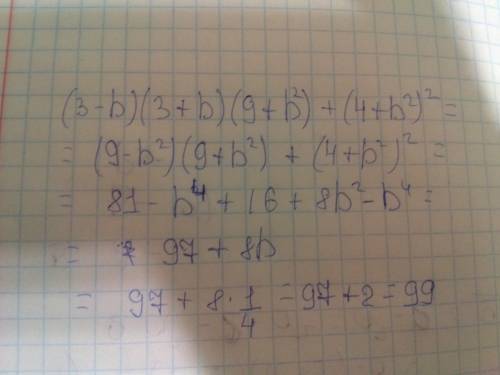 (3-b)(3+b)(9+b²)+(4+b²)²=
= (9-b²)(9+b²) + (4+b²)² =
= 81 - b⁴ + 16 + 8b² - b⁴ =
= 97 + 8b
= 97 + 8·1/4 = 97 + 2 = 99